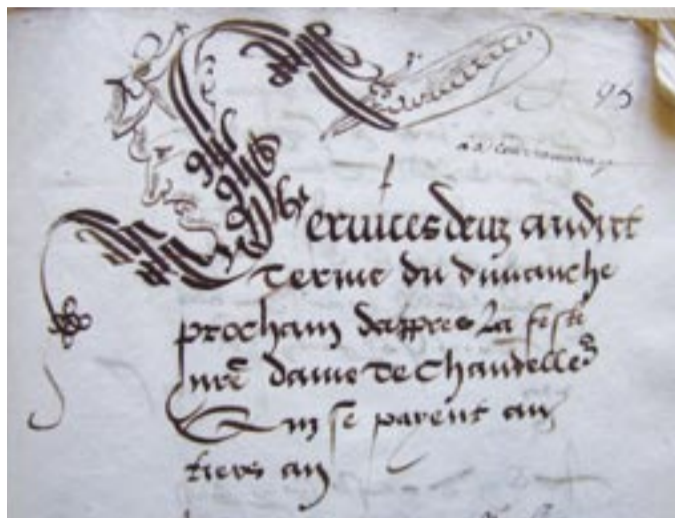 95
Seruices deuz audict
terme du dimanche
prochain dappres la feste
nre dame de Chandelles
Qui se paient au
tiers an